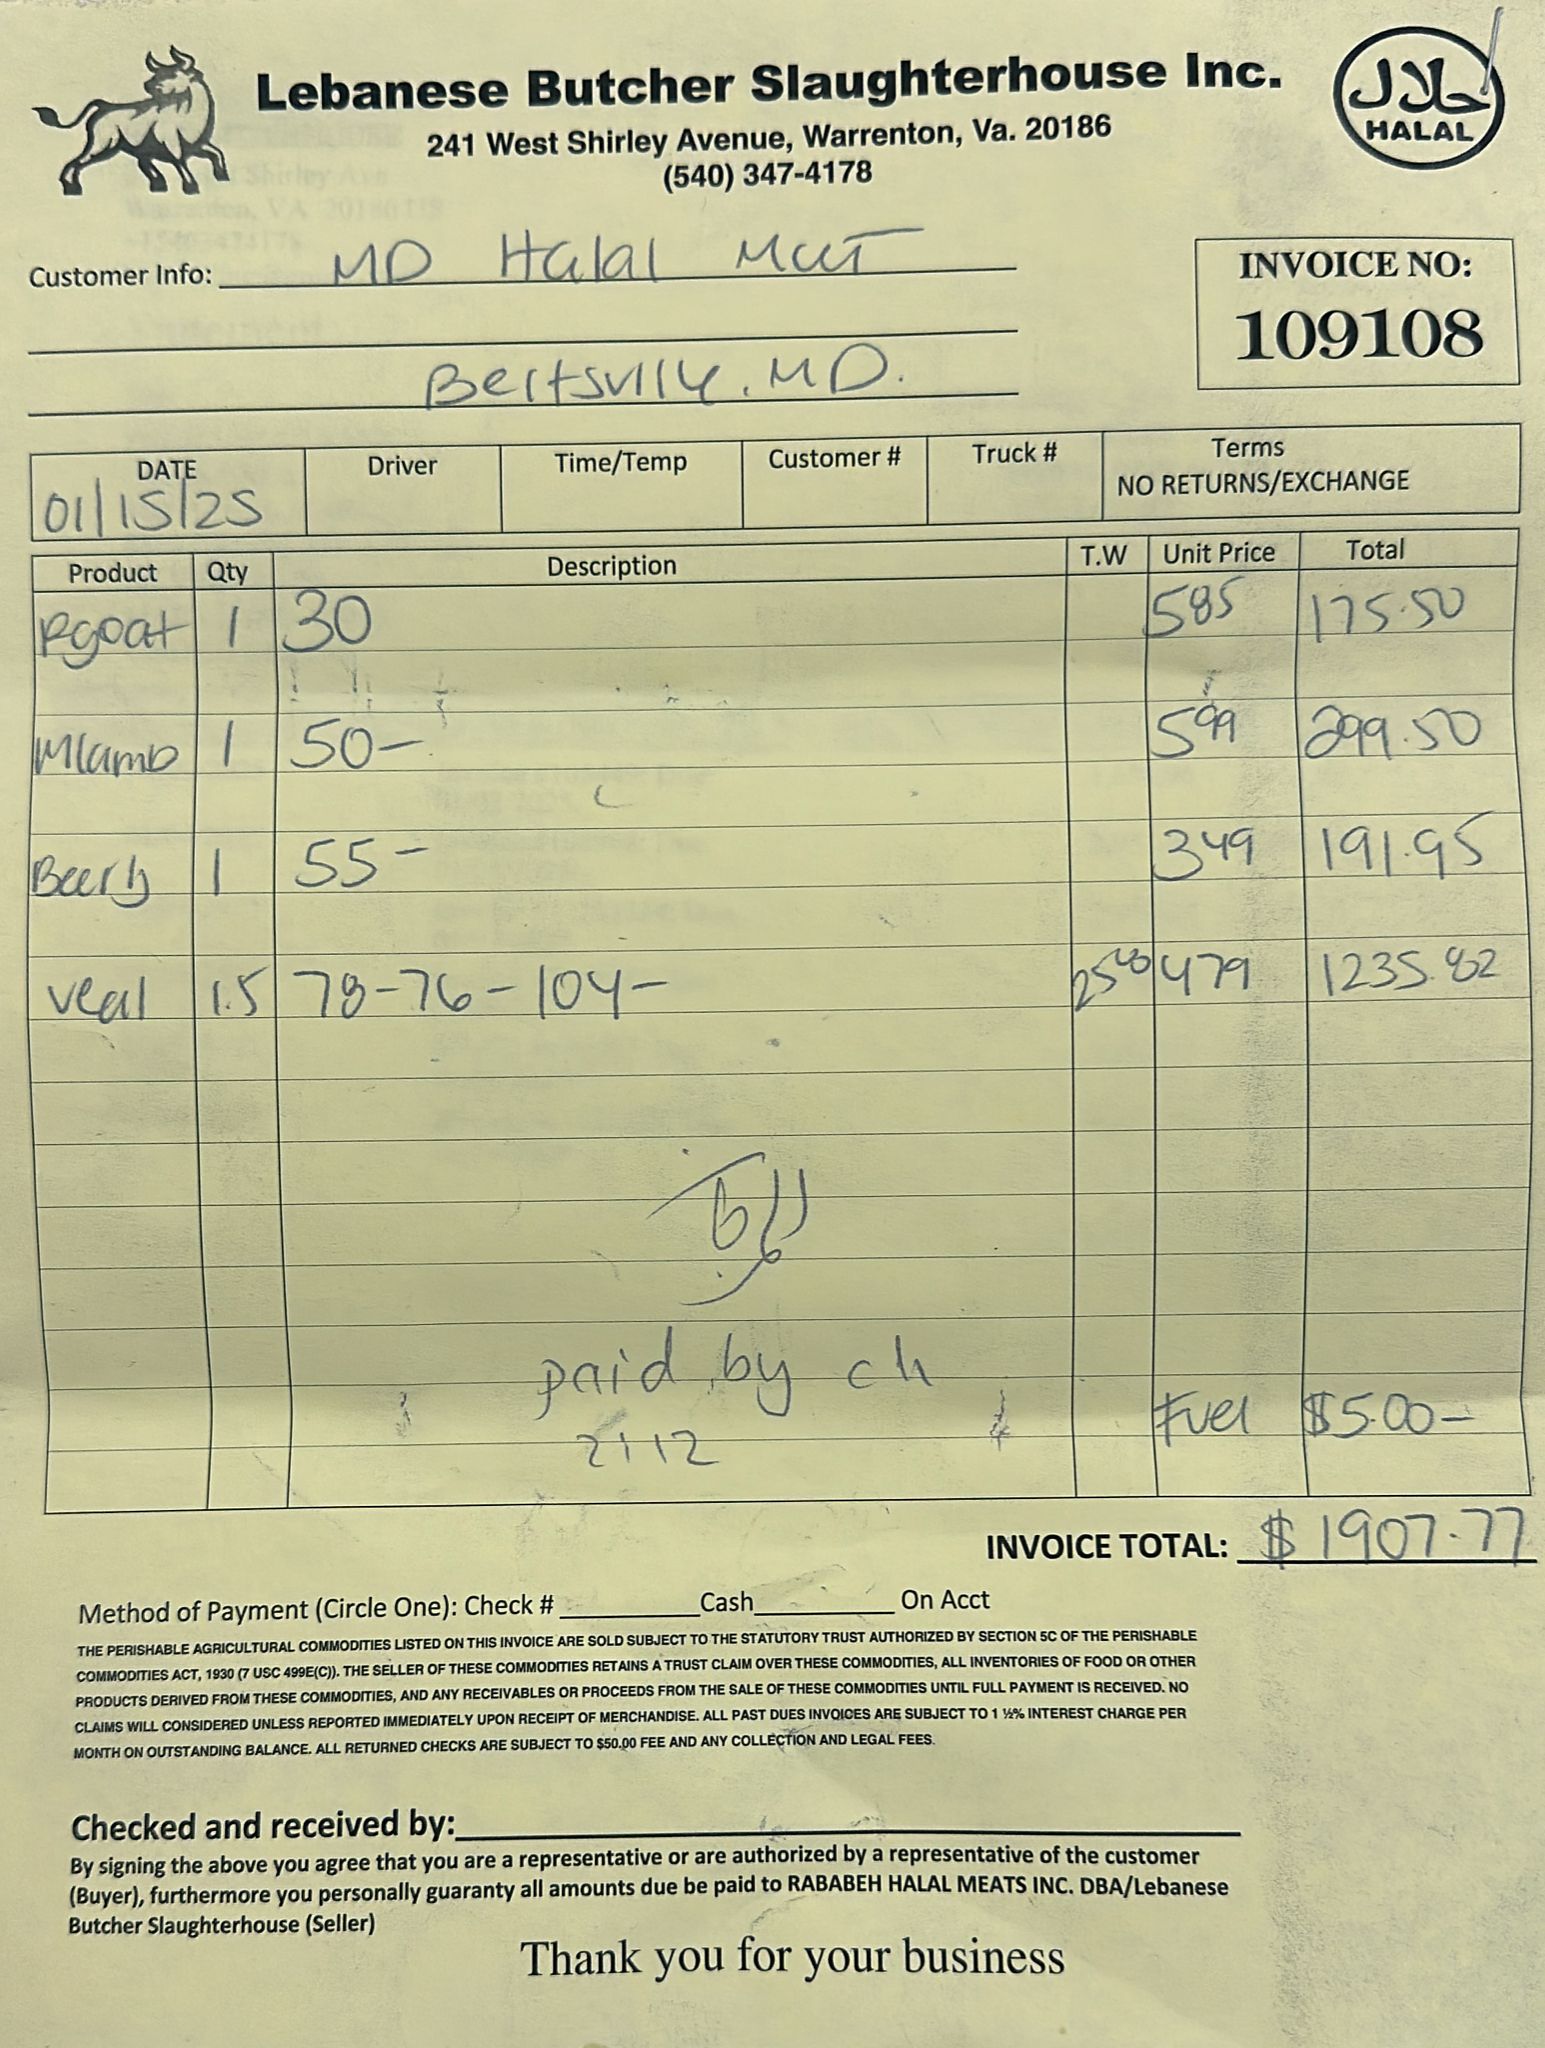 Lebanese Butcher Slaughterhouse Inc.
241 West Shirley Avenue, Warrenton, Va. 20186
(540) 347-4178
حلال
HALAL
Customer Info: MD Halal Meet
INVOICE NO:
109108
Beltsville, MD.
DATE Driver Time/Temp Customer # Truck # Terms
01/15/25 NO RETURNS/EXCHANGE
Product Qty Description T.W Unit Price Total
Rgoat 1 30 5 85 175.50
Mlamb 1 50- 5 99 299.50
1 55- 3 49 191.95
veal 1.5 78-76-104- 258 4 79 1235.82
paid by ch
2112
Fuel $5.00-
INVOICE TOTAL: $1907.77
Method of Payment (Circle One): Check # Cash On Acct
THE PERISHABLE AGRICULTURAL COMMODITIES LISTED ON THIS INVOICE ARE SOLD SUBJECT TO THE STATUTORY TRUST AUTHORIZED BY SECTION 5C OF THE PERISHABLE
COMMODITIES ACT, 1930 (7 USC 499E(C)). THE SELLER OF THESE COMMODITIES RETAINS A TRUST CLAIM OVER THESE COMMODITIES, ALL INVENTORIES OF FOOD OR OTHER
PRODUCTS DERIVED FROM THESE COMMODITIES, AND ANY RECEIVABLES OR PROCEEDS FROM THE SALE OF THESE COMMODITIES UNTIL FULL PAYMENT IS RECEIVED. NO
CLAIMS WILL CONSIDERED UNLESS REPORTED IMMEDIATELY UPON RECEIPT OF MERCHANDISE. ALL PAST DUES INVOICES ARE SUBJECT TO 1 ½% INTEREST CHARGE PER
MONTH ON OUTSTANDING BALANCE. ALL RETURNED CHECKS ARE SUBJECT TO $50.00 FEE AND ANY COLLECTION AND LEGAL FEES.
Checked and received by:
By signing the above you agree that you are a representative or are authorized by a representative of the customer
(Buyer), furthermore you personally guaranty all amounts due be paid to RABABEH HALAL MEATS INC. DBA/Lebanese
Butcher Slaughterhouse (Seller)
Thank you for your business